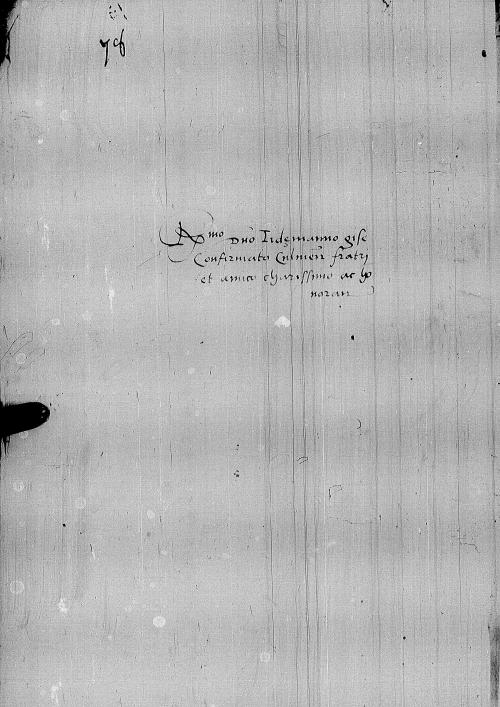 76
R̃mo Dno Tidemanno gise
Confirmato Culmeñ fratri
et amico charissimo ac ho
noran